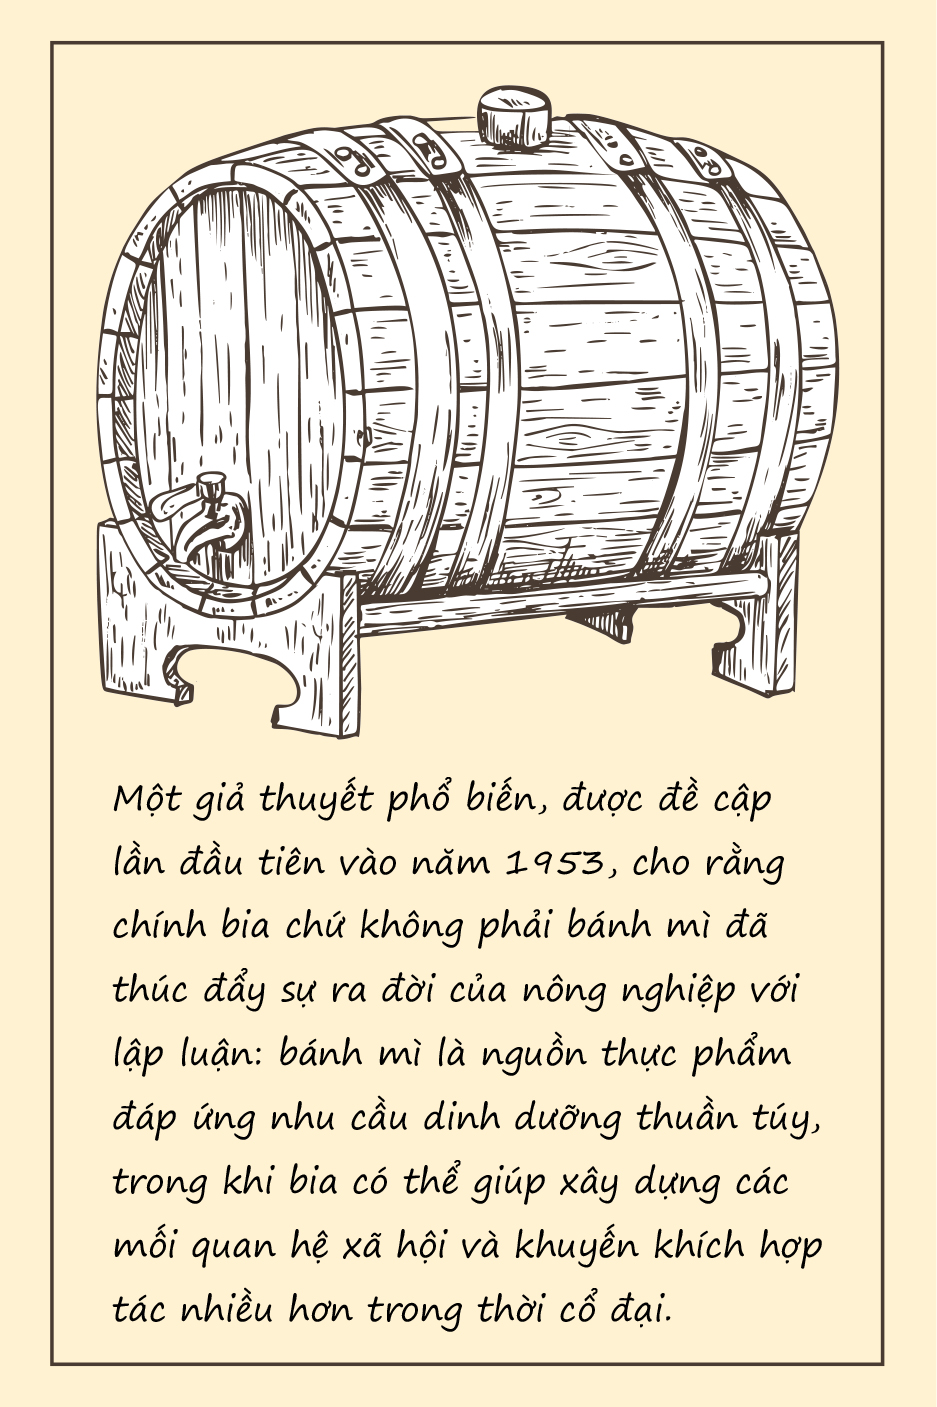 Một giả thuyết phổ biến, được đề cập
lần đầu tiên vào năm 1953, cho rằng
chính bia chứ không phải bánh mì đã
thúc đẩy sự ra đời của nông nghiệp với
lập luận: bánh mì là nguồn thực phẩm
đáp ứng nhu cầu dinh dưỡng thuần túy,
trong khi bia có thể giúp xây dựng các
mối quan hệ xã hội và khuyến khích hợp
tác nhiều hơn trong thời cổ đại.